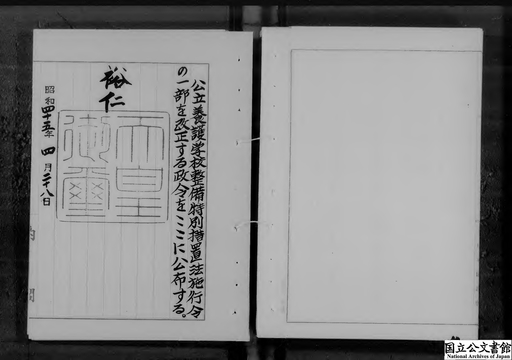 公立養護学校整備特別措置法施行令
の一部を改正する政令をここに公布する。
裕仁
天皇
御璽
昭和四十五年四月二十八日
内閣
国立公文書館
National Archives of Japan